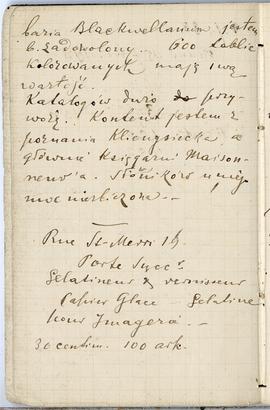 baria Blackwellanum jestem
b. zadowolony. 600 tablic
kolorowanych mają swą
wartość.
Katalogów dużo przy-
wożę. Kontent jestem z
poznania Klieneksiecka, a
głównie księgarni Maison-
neuv'a. Słowników u niego
moc niezliczona. —
Rue St-Merri 19.
Porte Succr
Gelatineur & vernisseur
Papier Glace — Gelatine
pour Imagerie. —
30 centim. 100 ark.